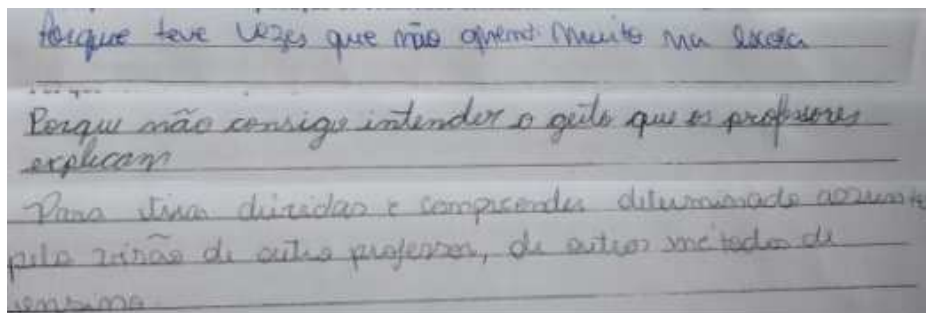 Porque teve vezes que não muito na escola
Porque não consigo intender o geito que os professores
explicam
Para tirar dúvidas e compreender determinado assunto
pela visão de outro professor, de outros métodos de
ensino